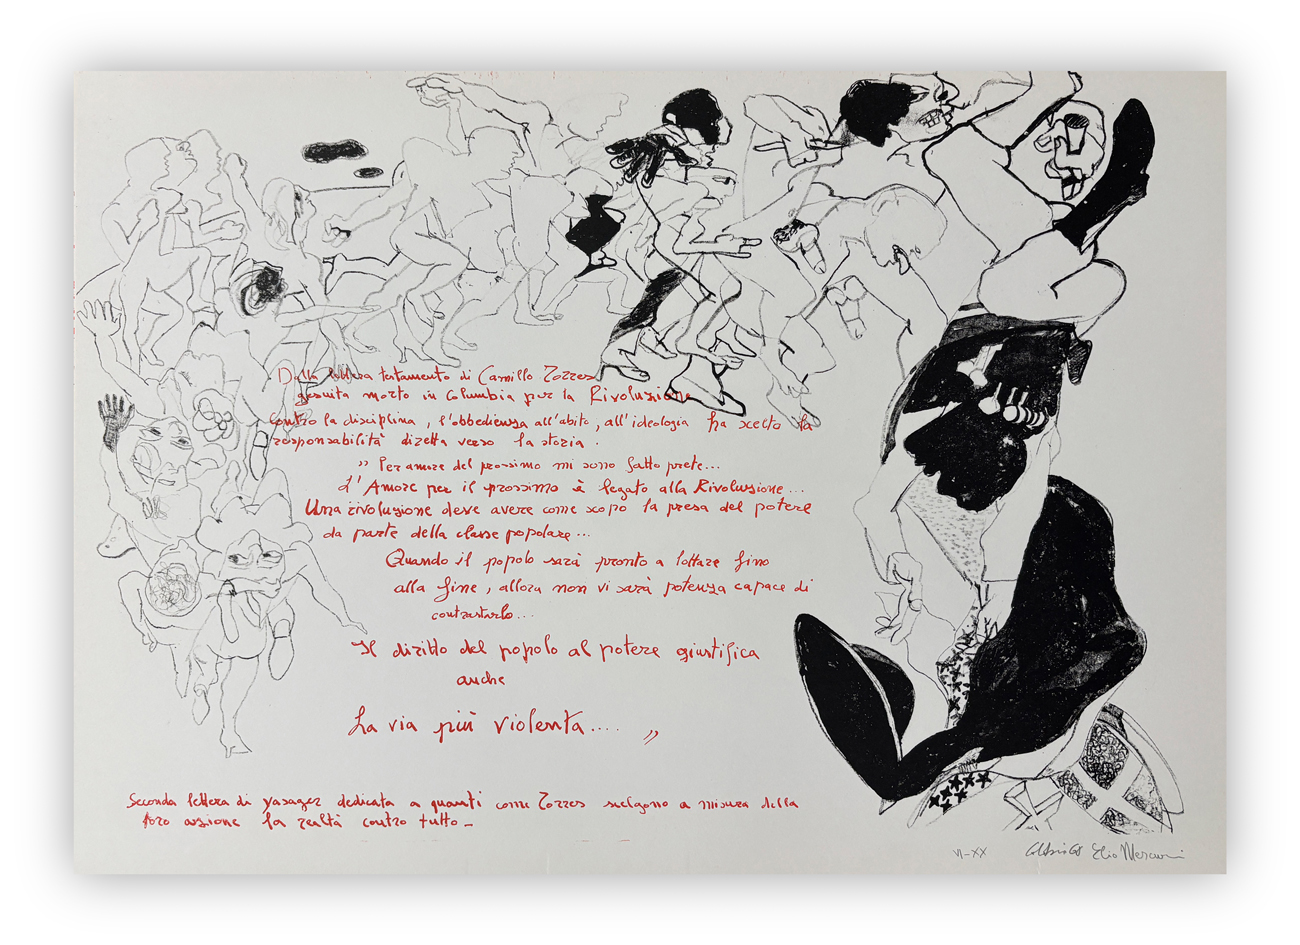 Dalla lettera testamento di Camillo Torres
gesuita morto in Columbia per la Rivoluzione
contro la disciplina, l'obbedienza all'abito, all'ideologia ha scelto la
responsabilità diretta verso la storia.
" Per amore del prossimo mi sono fatto prete...
L'Amore per il prossimo è legato alla Rivoluzione...
Una rivoluzione deve avere come scopo la presa del potere
da parte della classe popolare...
Quando il popolo sarà pronto a lottare fino
alla fine, allora non vi sarà potenza capace di
contrastarlo...
Il diritto del popolo al potere giustifica
anche
La via più violenta.... "
Seconda lettera di Yasager dedicata a quanti come Torres scelgono a misura della
loro azione la realtà contro tutto_
VI-XX Elio Mercuri